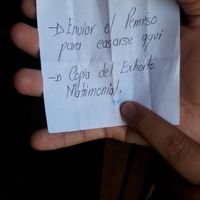 → Enviar el Permiso
para casarse aqui
→ Copia del Exhorto
Matimonial.